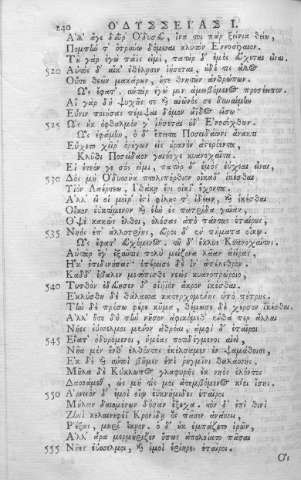 240 ΟΔΥΣΣΕΙΑΣ Ι.
Ἀλλ' ἄγε δεῦρ' Ὀδυσεῦ, ἵνα τοι πὰρ ξείνια θείω,
Πομπήν τ' ὀτρύνω δόμεναι κλυτὸν Ἐννοσίγαιον·
Τοῦ γὰρ ἐγὼ πάϊς εἰμὶ, πατὴρ δ' ἐμὸς εὔχεται εἶναι·
520 Αὐτὸς δ' αἴκ' ἐθέλησιν ἰήσεται, οὐδέ τις ἄλλος
Οὔτε θεῶν μακάρων, οὔτε θνητῶν ἀνθρώπων.
Ὣς ἔφατ'· αὐτὰρ ἐγώ μιν ἀμειβόμενος προσέειπον·
Αἲ γὰρ δὴ ψυχῆς τε καὶ αἰῶνός σε δυναίμην
Εὖνιν ποιήσας πέμψαι δόμον ἄϊδος εἴσω·
525 Ὡς οὐκ ὀφθαλμόν γ' ἰήσεται οὐδ' Ἐνοσίχθων.
Ὣς ἐφάμην, ὁ δ' ἔπειτα Ποσειδάωνι ἄνακτι
Εὔχετο χεῖρ' ὀρέγων εἰς οὐρανὸν ἀστερόεντα·
Κλῦθι Ποσείδαον γαιήοχε κυανοχαῖτα·
Εἰ ἐτεόν γε σός εἰμι, πατὴρ δ' ἐμὸς εὔχεαι εἶναι,
530 Δὸς μὴ Ὀδυσσῆα πτολιπόρθιον οἴκαδ' ἱκέσθαι
Υἱὸν Λαέρτεω, Ἰθάκῃ ἔνι οἰκί' ἔχοντα.
Ἀλλ' εἴ οἱ μοῖρ' ἐστὶ φίλους τ' ἰδέειν, καὶ ἱκέσθαι
Οἶκον ἐϋκτίμενον καὶ ἑὴν ἐς πατρίδα γαῖαν,
Ὀψὲ κακῶς ἔλθοι, ὀλέσας ἄπο πάντας ἑταίρους,
535 Νηὸς ἐπ' ἀλλοτρίης, εὕροι δ' ἐν πήματα οἴκῳ.
Ὣς ἔφατ' εὐχόμενος, τοῦ δ' ἔκλυε Κυανοχαίτης.
Αὐτὰρ ὅγ' ἐξαῦτις πολὺ μείζονα λᾶαν ἀείρας
Ἧκ' ἐπιδινήσας· ἐπέρεισε δὲ ἶν' ἀπέλεθρον·
Κὰδδ' ἔβαλεν μετόπισθε νεὸς κυανοπρώροιο,
540 Τυτθὸν ἐδεύησεν δ' οἰήϊον ἄκρον ἱκέσθαι.
Ἐκλύσθη δὲ θάλασσα κατερχομένης ὑπὸ πέτρης.
Τὴν δὲ πρόσω φέρε κῦμα, θέμωσε δὲ χέρσον ἱκέσθαι.
Ἀλλ' ὅτε δὴ τὴν νῆσον ἀφικόμεθ' ἔνθα περ ἄλλαι
Νῆες εὔσσελμοι μένον ἀθρόαι, ἀμφὶ δ' ἑταῖροι
545 Εἵατ' ὀδυρόμενοι, ἡμέας ποτιδέγμενοι αἰεί·
Νῆα μὲν ἔνθ' ἐλθόντες ἐκέλσαμεν ἐν ψαμάθοισιν,
Ἐκ δὲ καὶ αὐτοὶ βῆμεν ἐπὶ ῥηγμῖνι θαλάσσης.
Μῆλα δὲ Κύκλωπος γλαφυρῆς ἐκ νηὸς ἑλόντες
Δασσάμεθ', ὡς μή τίς μοι ἀτεμβόμενος κίοι ἴσης.
550 Ἀρνειὸν δ' ἐμοὶ οἴῳ ἐϋκνήμιδες ἑταῖροι
Μήλων δαιομένων δόσαν ἔξοχα. τὸν δ' ἐπὶ θινὶ
Ζηνὶ κελαινεφέϊ Κρονίδῃ ὃς πᾶσιν ἀνάσσει,
Ῥέξας, μηρί' ἔκαιον. ὁ δ' οὐκ ἐμπάζετο ἱρῶν,
Ἀλλ' ἄρα μερμήριζεν ὅπως ἀπολοίατο πᾶσαι
555 Νῆες εὔσσελμοι, καὶ ἐμοὶ ἐρίηρες ἑταῖροι.
Οἱ